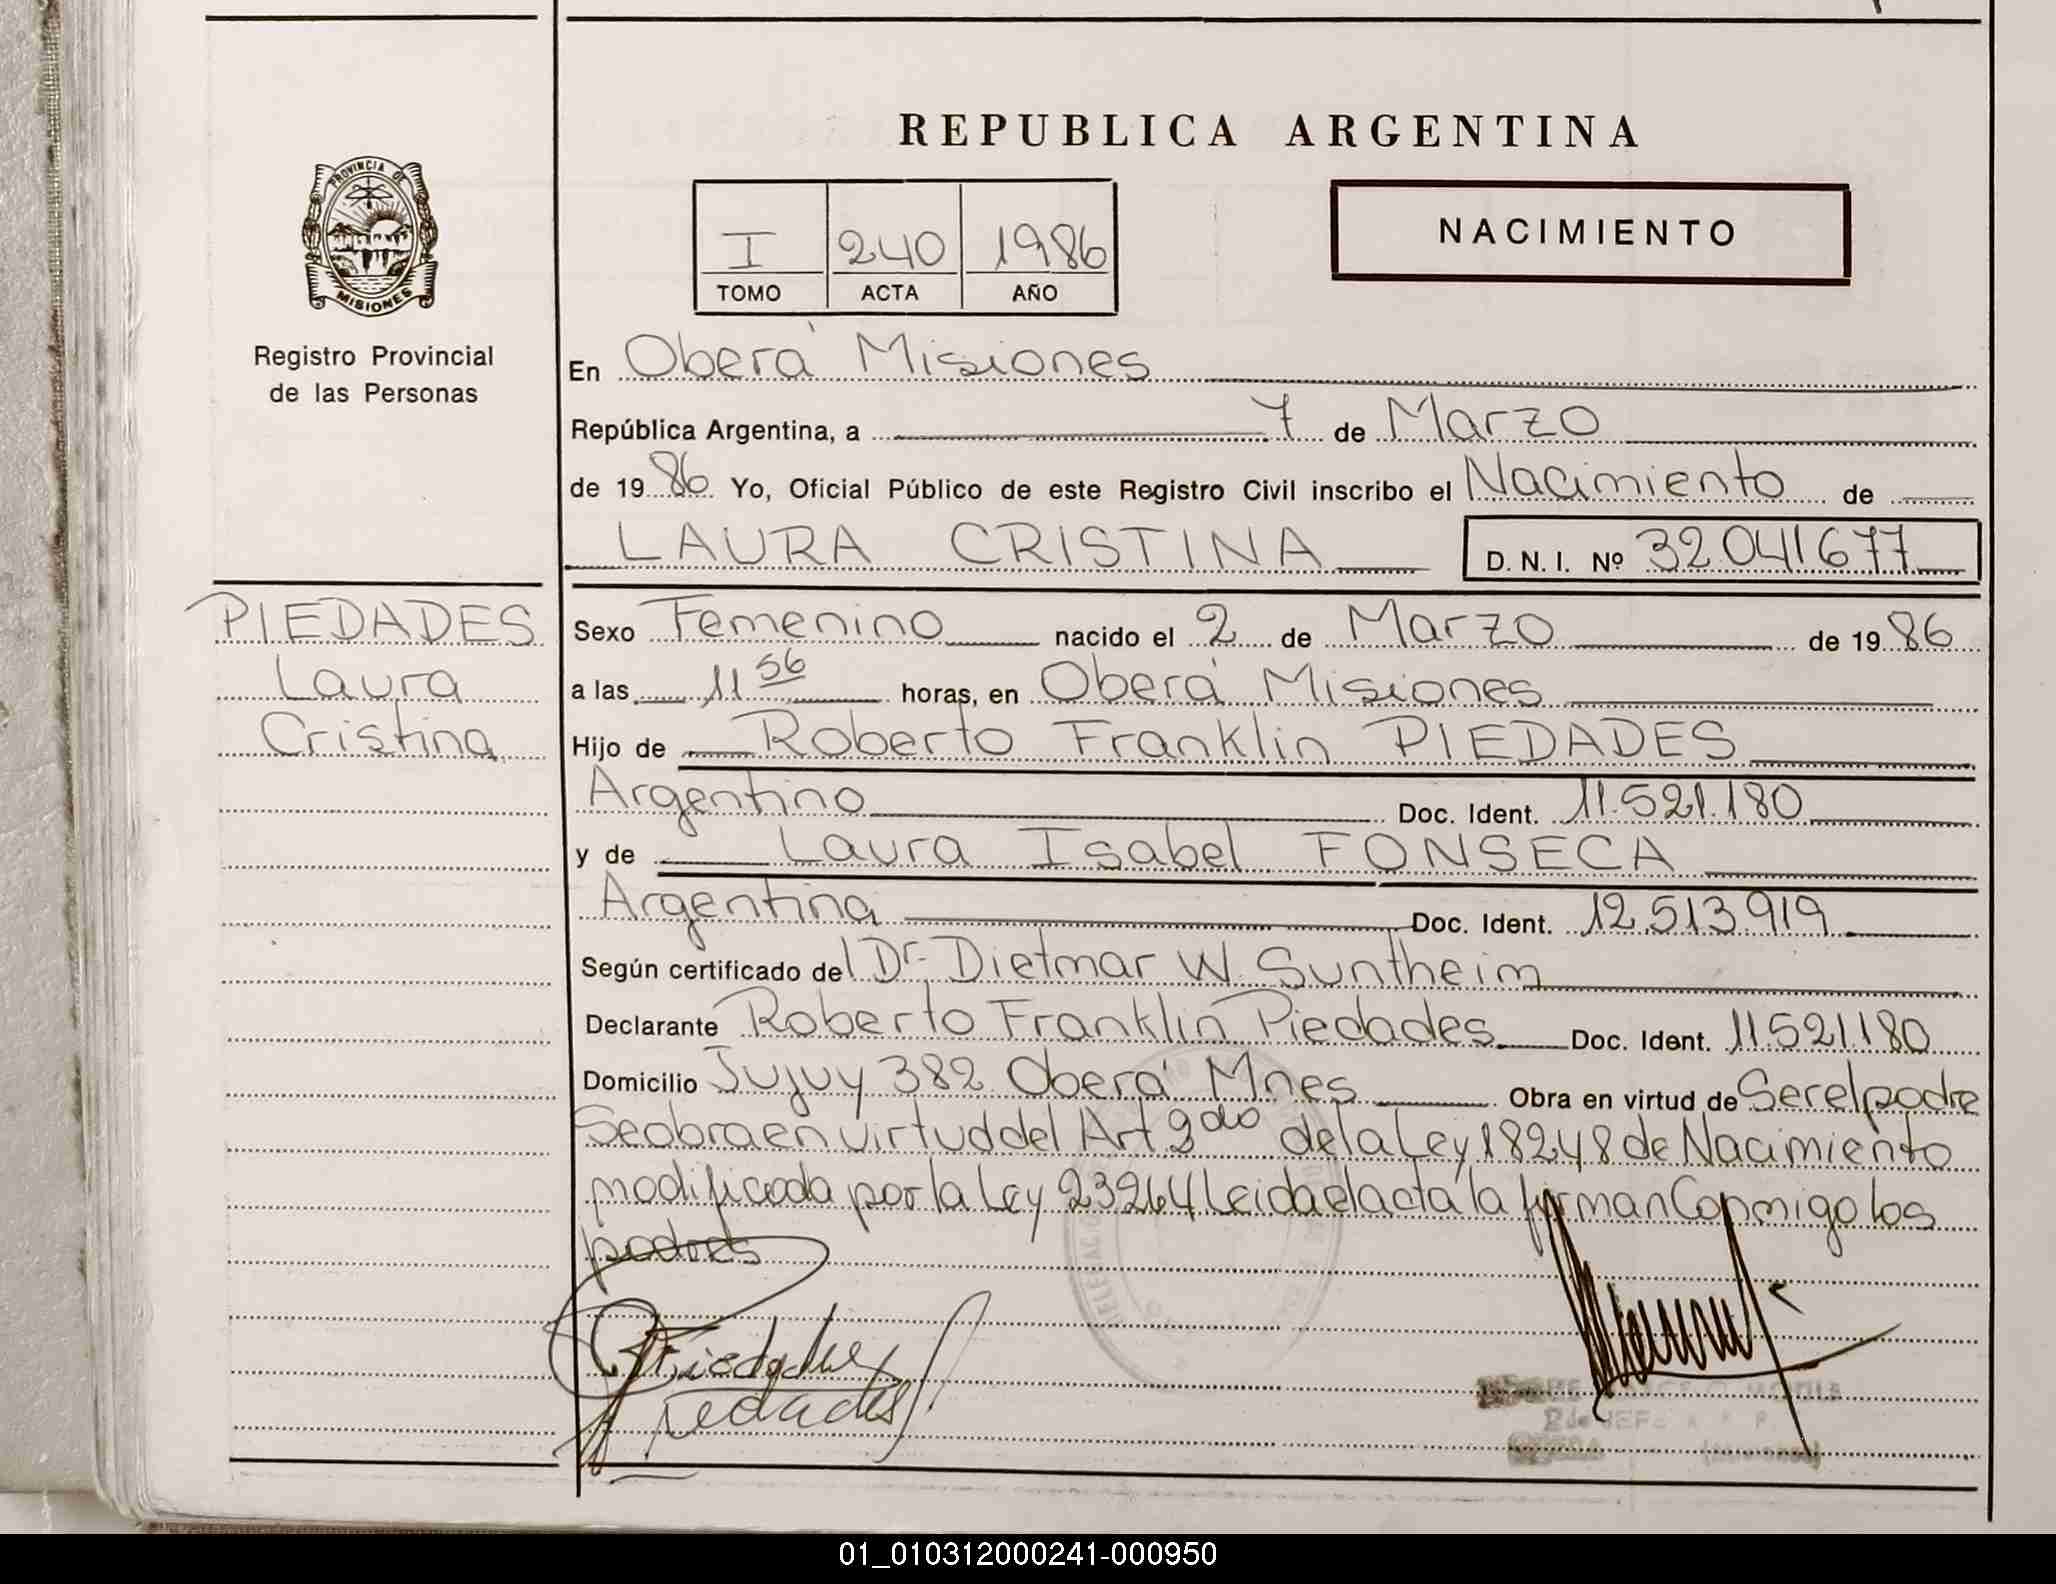 REPUBLICA ARGENTINA
PROVINCIA DE
MISIONES
Registro Provincial
de las Personas
I 240 1986
TOMO ACTA AÑO
NACIMIENTO
En Oberá Misiones
República Argentina, a 7 de Marzo
de 1986 Yo, Oficial Público de este Registro Civil inscribo el Nacimiento de
LAURA CRISTINA D. N. I. Nº 32.041.677
PIEDADES
Laura
Cristina
Sexo Femenino nacido el 2 de Marzo de 1986
a las 11 56 horas, en Oberá Misiones
Hijo de Roberto Franklin PIEDADES
Argentino Doc. Ident. 11.521.180
y de Laura Isabel FONSECA
Argentina Doc. Ident. 12.513.919
Según certificado del Dr. Dietmar W. Suntheim
Declarante Roberto Franklin Piedades Doc. Ident. 11.521.180
Domicilio Jujuy 382 Oberá Mnes Obra en virtud de Ser el padre
Se obra en virtud del Art 2do de la Ley 18248 de Nacimiento
modificada por la Ley 23264 Leida el acta la firman Conmigo los
padres
Piedades
Piedades
01_010312000241-000950